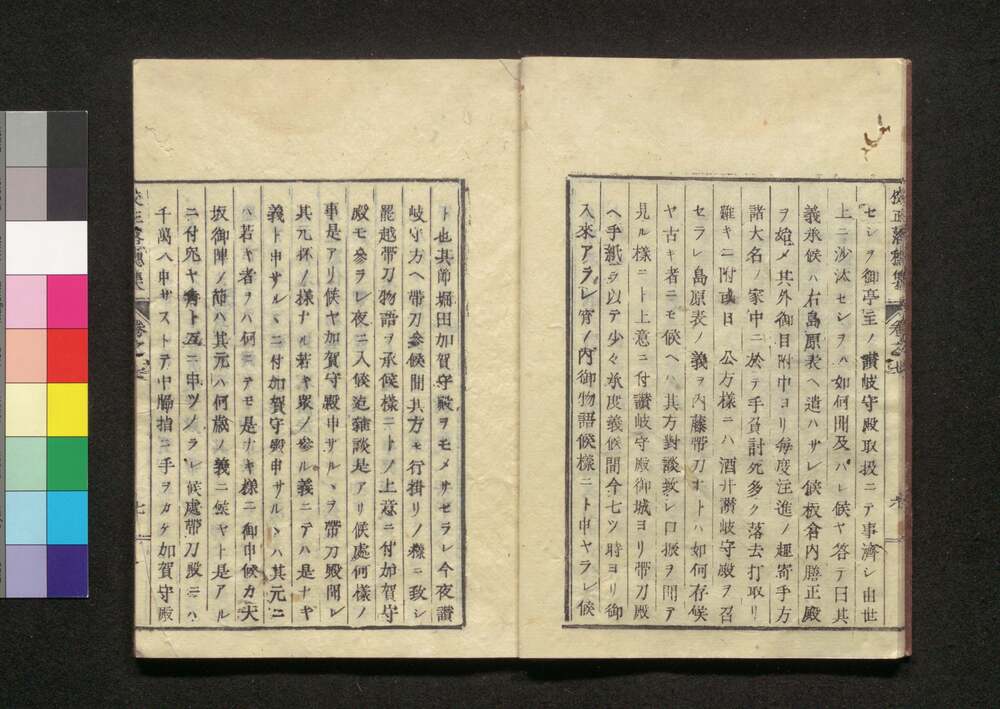 セシヲ御亭主ノ讃岐守殿取扱ニテ事濟シ由世
上ニ沙汰セシヲハ如何聞及バレ候ヤ答テ曰其
義承候ハ右島原表ヘ遣ハサレ候板倉内膳正殿
ヲ始メ其外御目附中ヨリ毎度注進ノ趣寄手方
諸大名ノ家中ニ於テ手負討死多ク落去打取リ
難キニ附或日 公方様ニハ酒井讃岐守殿ヲ召
セラレ島原表ノ義ヲ内藤帯刀ナトハ如何存候
ヤ古キ者ニモ候ヘハ其方對談致シ口振ヲ聞ア
見ル様ニト上意ニ付讃岐守殿御城ヨリ帯刀殿
ヘ手紙ヲ以テ少々承度義候間今七ツ時ヨリ御
入來アラレ宵ノ内御物語候様ニト申ヤラレ候
ト也其節堀田加賀守殿ヲモメサセラレ今夜讃
岐守方ヘ帯刀参候間其方モ行掛リノ様ニ致シ
罷越帯刀物語ヲ承候様ニトノ上意ニ付加賀守
殿モ参ラレ夜ニ入候迄雑談是アリ候處何様ノ
事是アリ候ヤ加賀守殿申サルヽヲ帯刀殿聞レ
其元杯ノ様ナル若キ衆ノ参ル義ニテハ是ナキ
義ト申サルヽニ付加賀守殿申サルヽハ其元ニ
ハ若キ者ヲハ何ニテモ是ナキ様ニ御申候カ大
坂御陣ノ節ハ其元ハ何歳ノ義ニ候ヤト是アル
ニ付兎ヤ角ト互ニ申ツノラレ候處帯刀殿ニハ
千萬八申サストテ中脇指ニ手ヲカケ加賀守殿
七